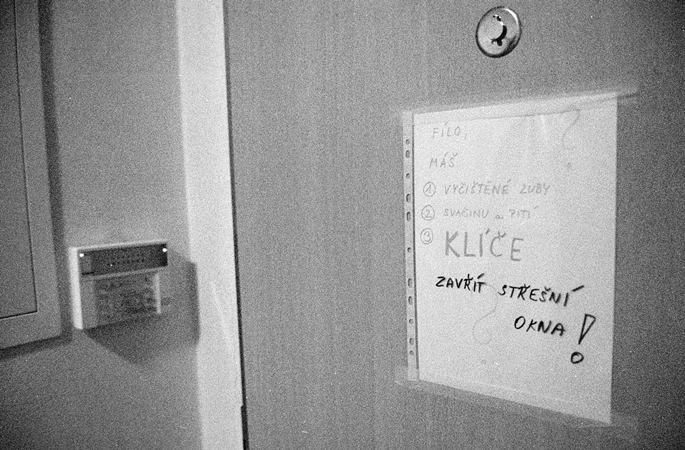 FÍLO,
MÁŠ
① VYČIŠTĚNÉ ZUBY ?
② SVAČINU a PITÍ
③ KLÍČE
ZAVŘÍT STŘEŠNÍ
OKNA!
?